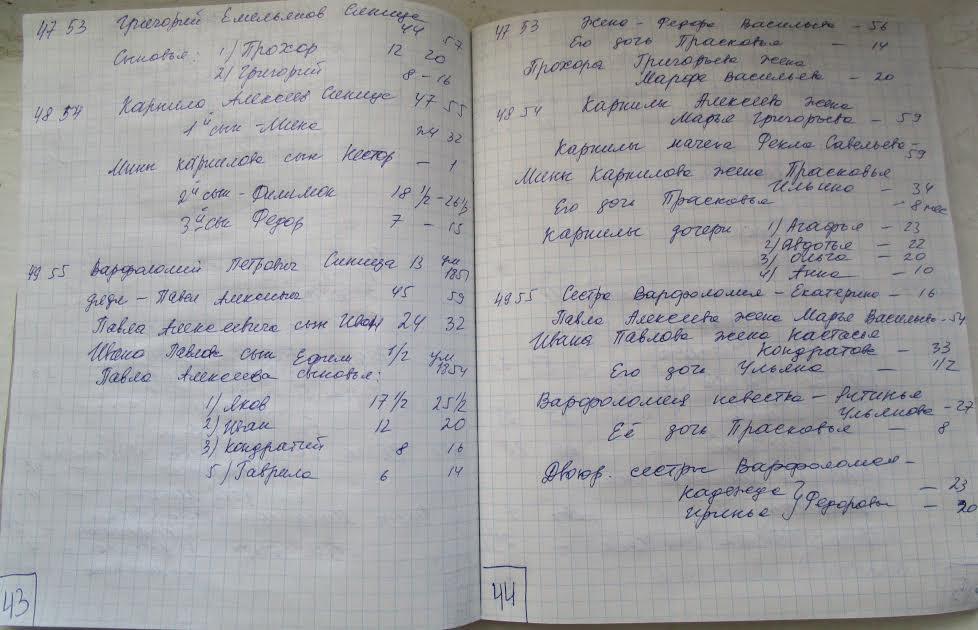 47 53 Григорий Емельянов Синица 44 57
Сыновья: 1) Прохор 12 20
2) Григорий 8 - 16
48 54 Карнило Алексеев Синица 47 55
1й сын - Мина 24 32
Мины Карнилова сын Нестор - 1
2й сын - Филимон 18 1/2 - 26 1/2
3й сын Федор 7 - 15
49 55 Варфоломий Петрович Синица 13 ум 1851
дядя - Павел Алексеевич 45 59
Павла Алексеевича сын Иван 24 32
Ивана Павлов сын Ефрем 1/2 ум 1854
Павла Алексеева сыновья:
1) Яков 17 1/2 25 1/2
2) Иван 12 20
3) Кондратий 8 16
5) Гаврила 6 14
43
47 53 Жена - Федора Васильева - 56
Его дочь Прасковья - 14
Прохора Григорьева жена
Марфа Васильева - 20
48 54 Карнилы Алексеева жена
Марья Григорьева - 59
Карнилы мачеха Фекла Савельева - 59
Мины Карнилова жена Прасковья
Ильина - 34
Его дочь Прасковья - 8 мес
Карнилы дочери: 1) Агафья - 23
2) Авдотья - 22
3) Ольга - 20
4) Анна - 10
49 55 Сестра Варфоломея - Екатерина - 16
Павла Алексеева жена Марья Васильева - 54
Ивана Павлова жена Настасья
Кондратова - 33
Его дочь Ульяна - 1/2
Варфоломея невестка - Устинья
Ульянова - 27
Её дочь Прасковья - 8
Двоюр. сестры Варфоломея -
Надежда } Федоровы - 23
Иринья - 20
44